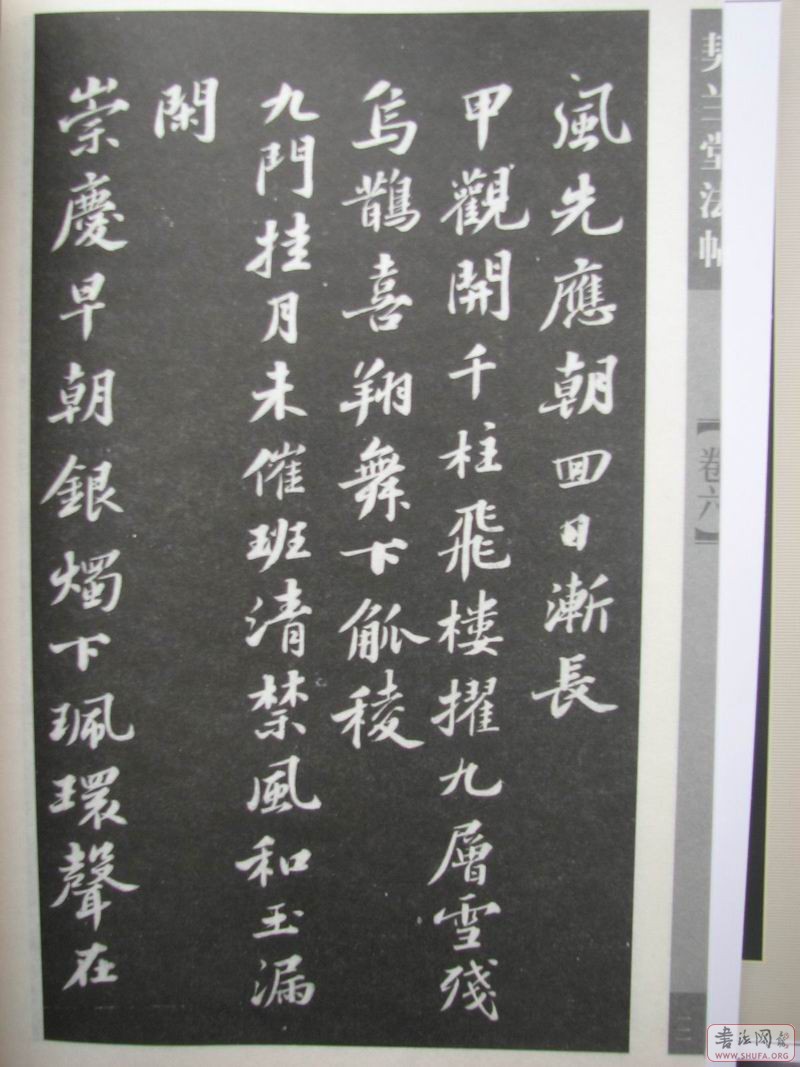 風先應朝回日漸長
甲觀開千柱飛樓擢九層雪殘
烏鵲喜翔舞下觚稜
九門挂月未催班清禁風和玉漏
閑
崇慶早朝銀燭下珮環聲在
契兰堂法帖
【卷六】
書法网
WWW.SHUFA.ORG